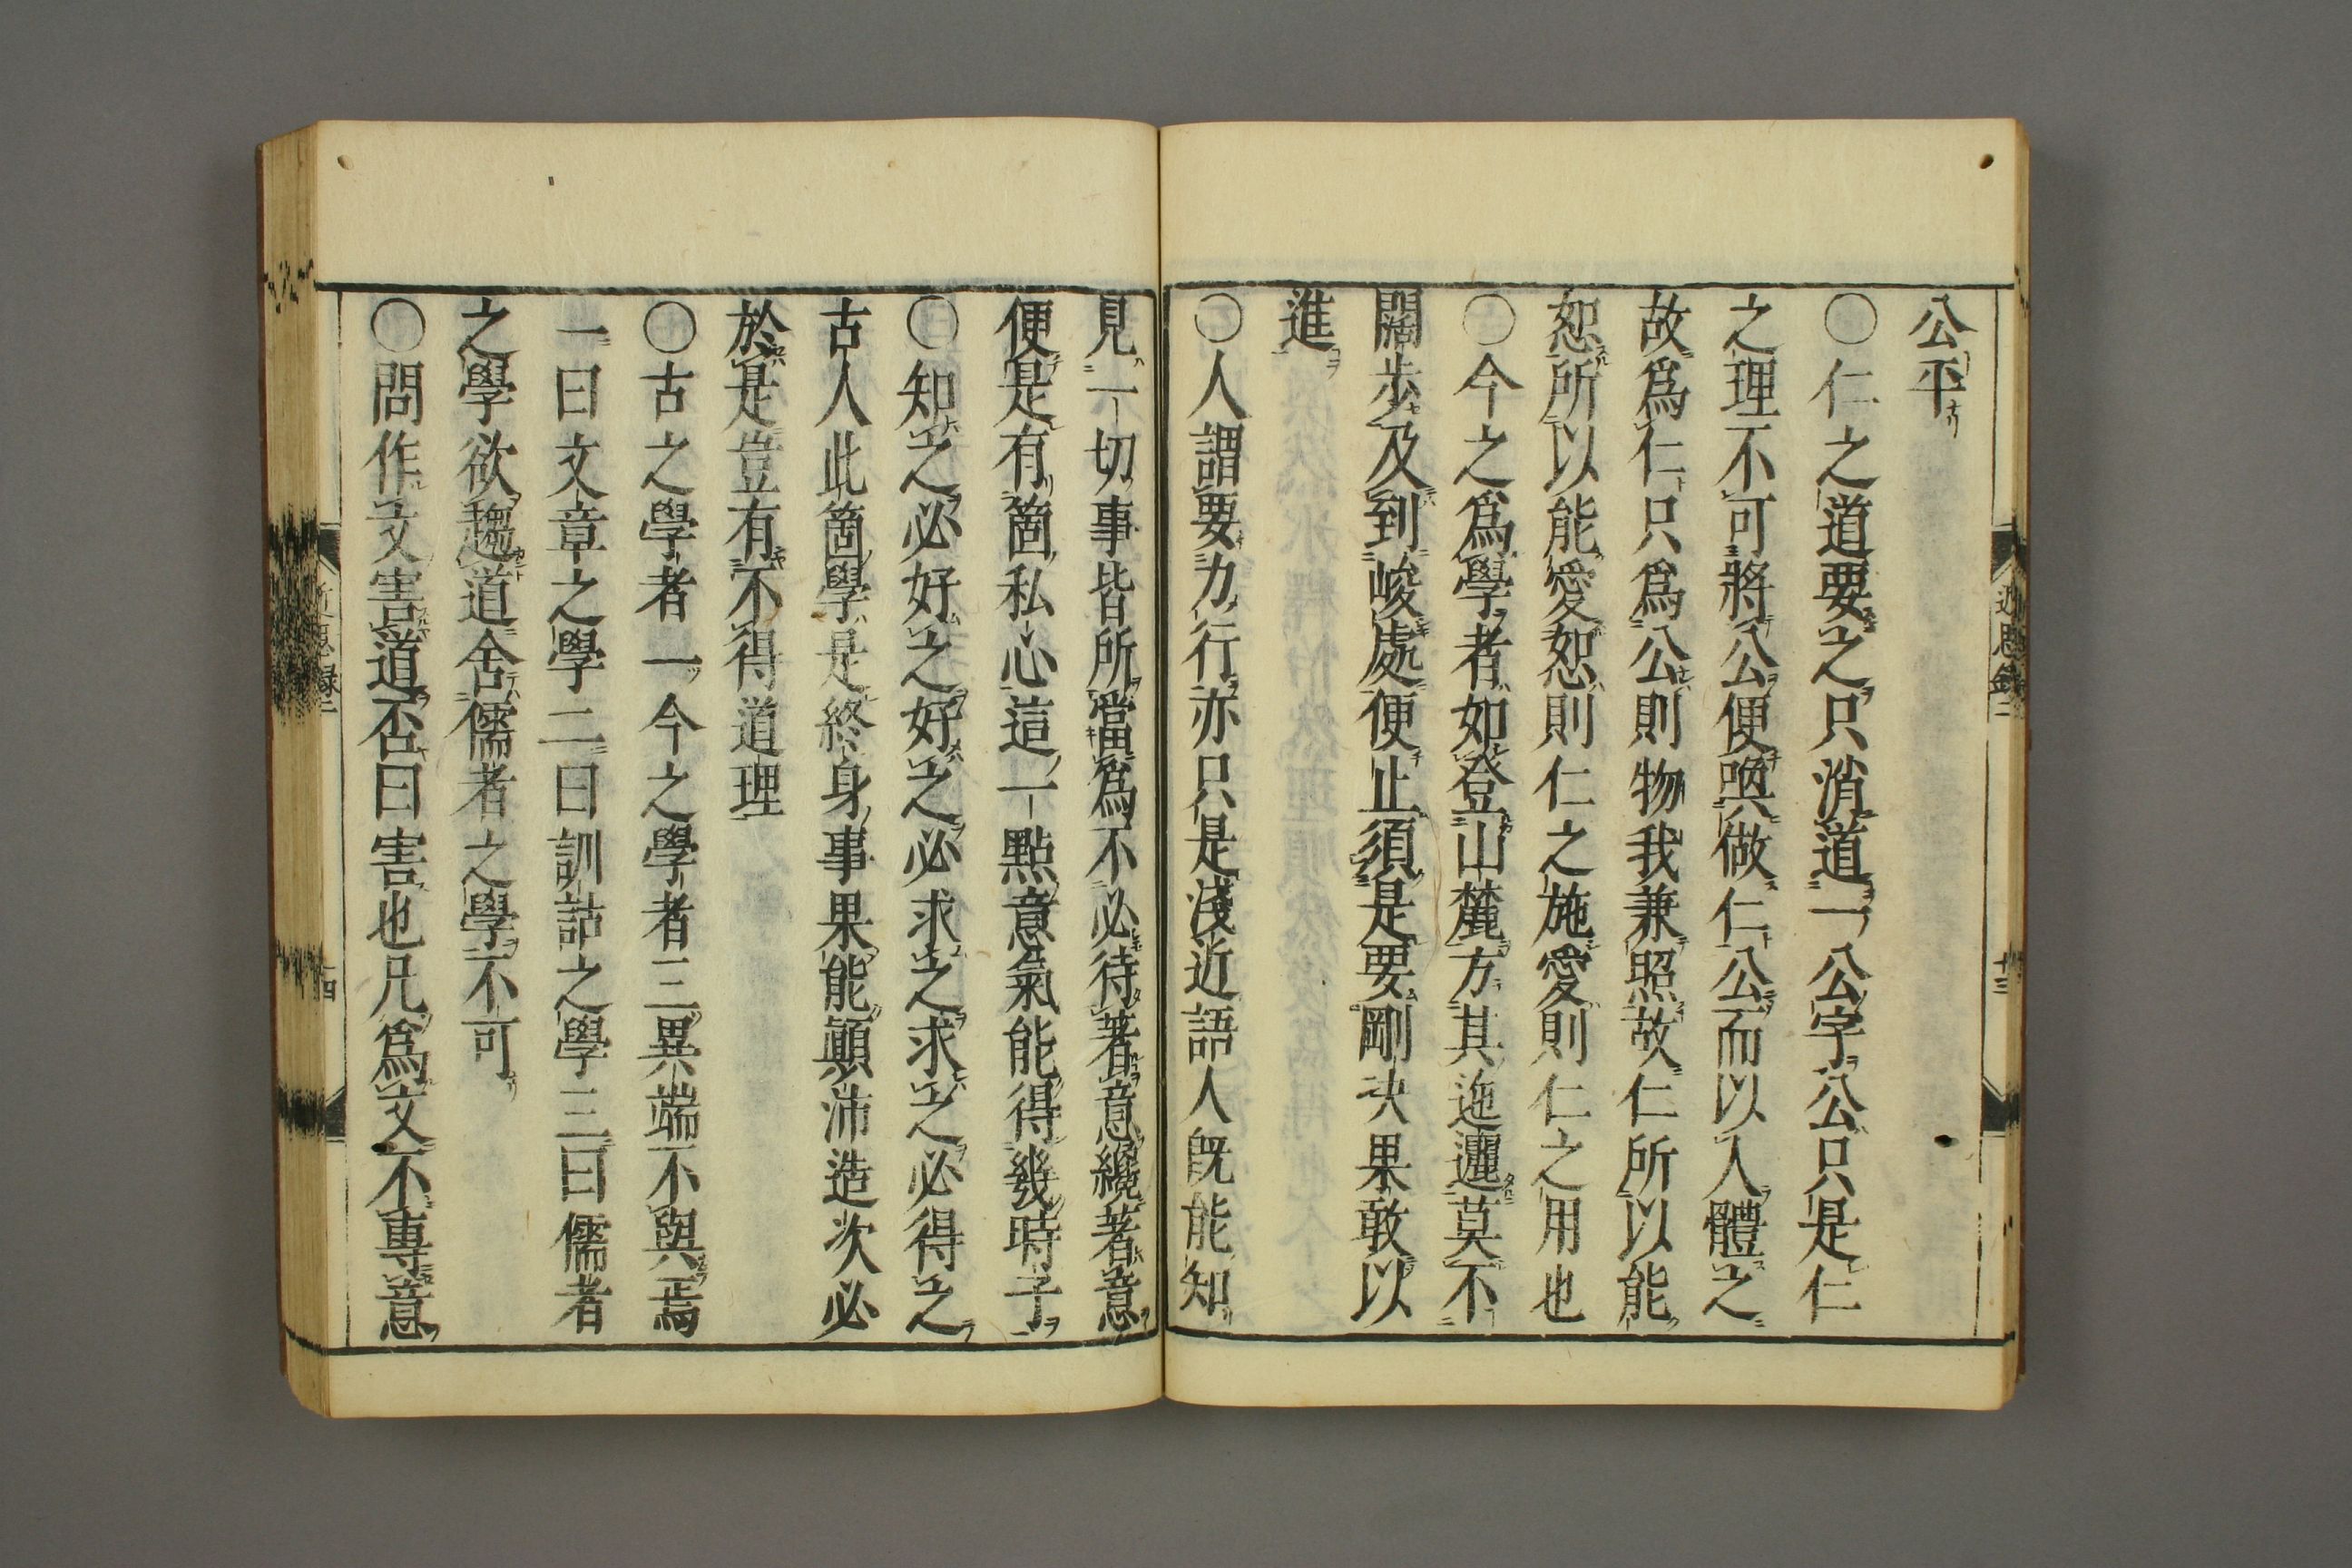 公平
○仁之道要之只消道一公字公只是仁
之理不可將公便喚做仁公而以人體之
故爲仁只爲公則物我兼照故仁所以能
恕所以能愛恕則仁之施愛則仁之用也
○今之爲學者如登山麓方其迤邐莫不
闊歩及到峻處便止須是要剛决果敢以
進
○人謂要力行亦只是淺近語人既能知
見一切事皆所當爲不必待著意纔著意
便是有箇私心這一點意氣能得幾時子
○知之必好之好之必求之求之必得之
古人此箇學是終身事果能顚沛造次必
於是豈有不得道理
○古之學者一今之學者三異端不與焉
一曰文章之學二曰訓詁之學三曰儒者
之學欲趨道舍儒者之學不可
○問作文害道否曰害也凡爲文不專意
近思録二
十三